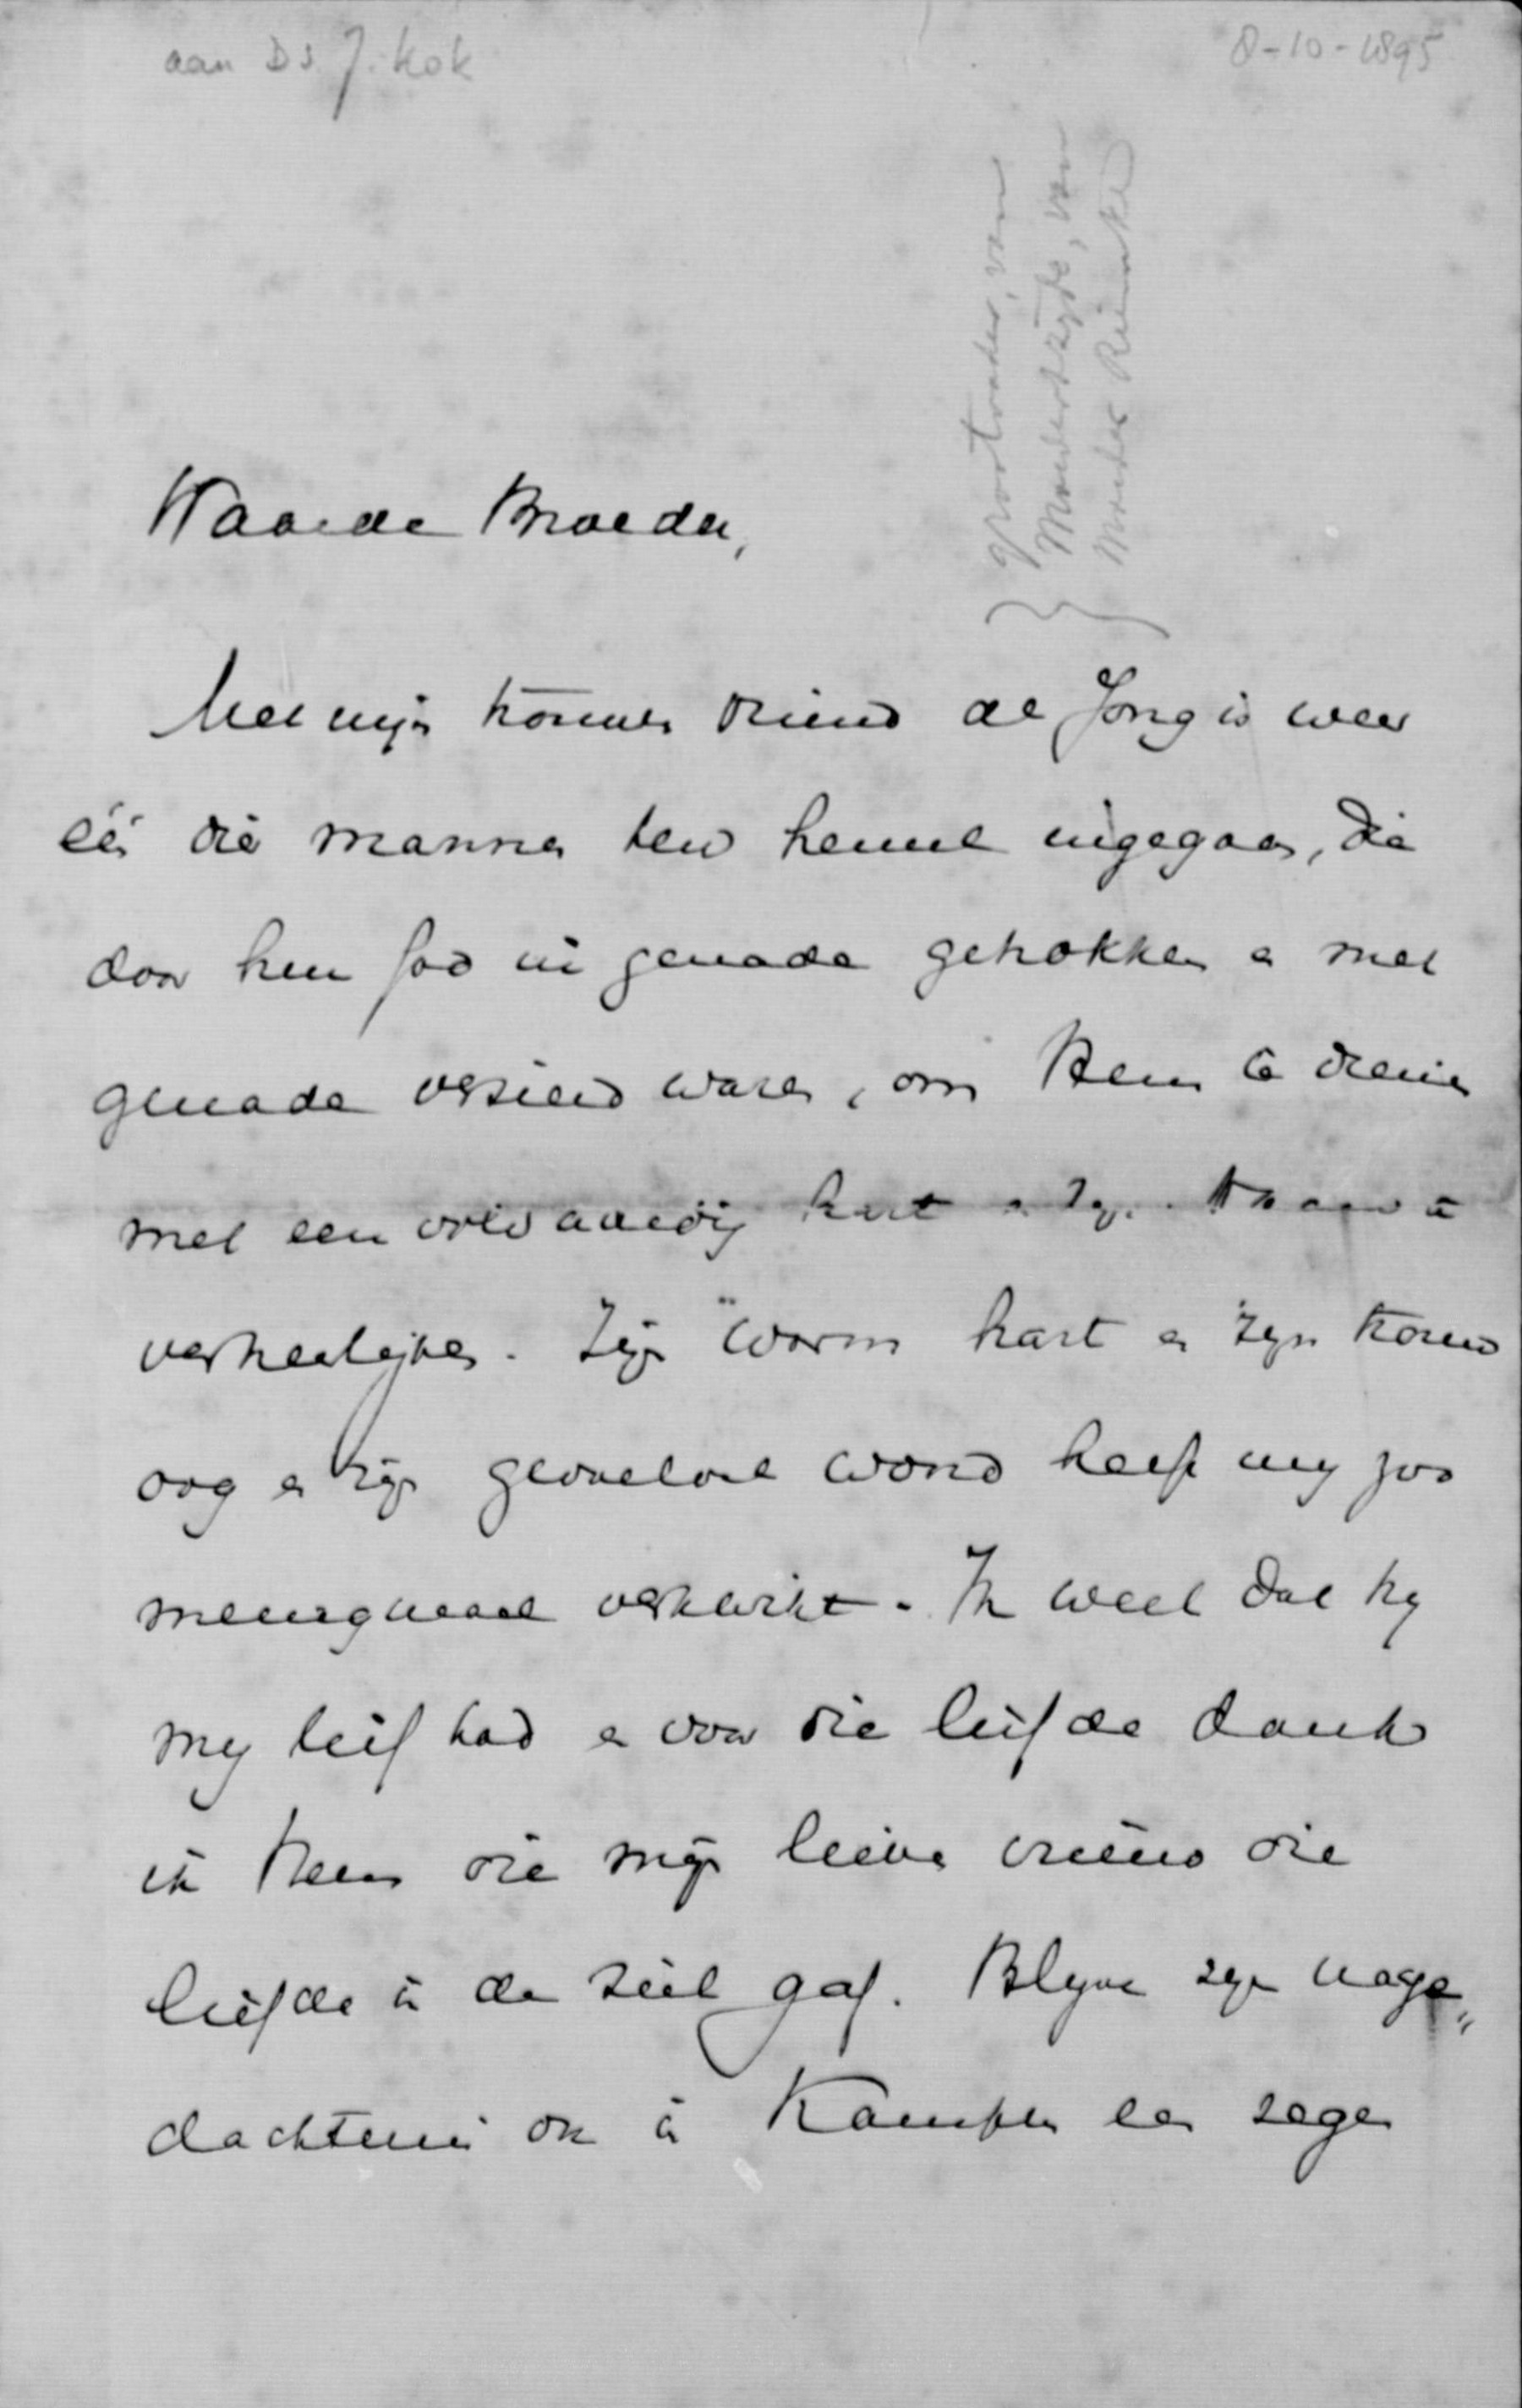 aan Ds. J. Kok
8-10-1895
grootvader van
Moedertijde, van
Moeder
Waarde Broeder,
Met mijn trouwen vriend de Jong is weer
één dier mannen ten hemel ingegaan, die
door hun God in genade getrokken en met
genade versierd waren, om Hem te dienen
met een volvaardig hart en Zijn Naam te
verheerlijken. Zijn warm hart en zijn trouw
oog en zijn gevoelvol woord heeft mij zoo
menigmaal verkwikt. Ik weet dat hij
mij lief had en voor die liefde dank
ik Hem die mijn lieven vriend die
liefde in de ziel gaf. Blijve zijn nage„
dachtenis ook in Kampen een zegen